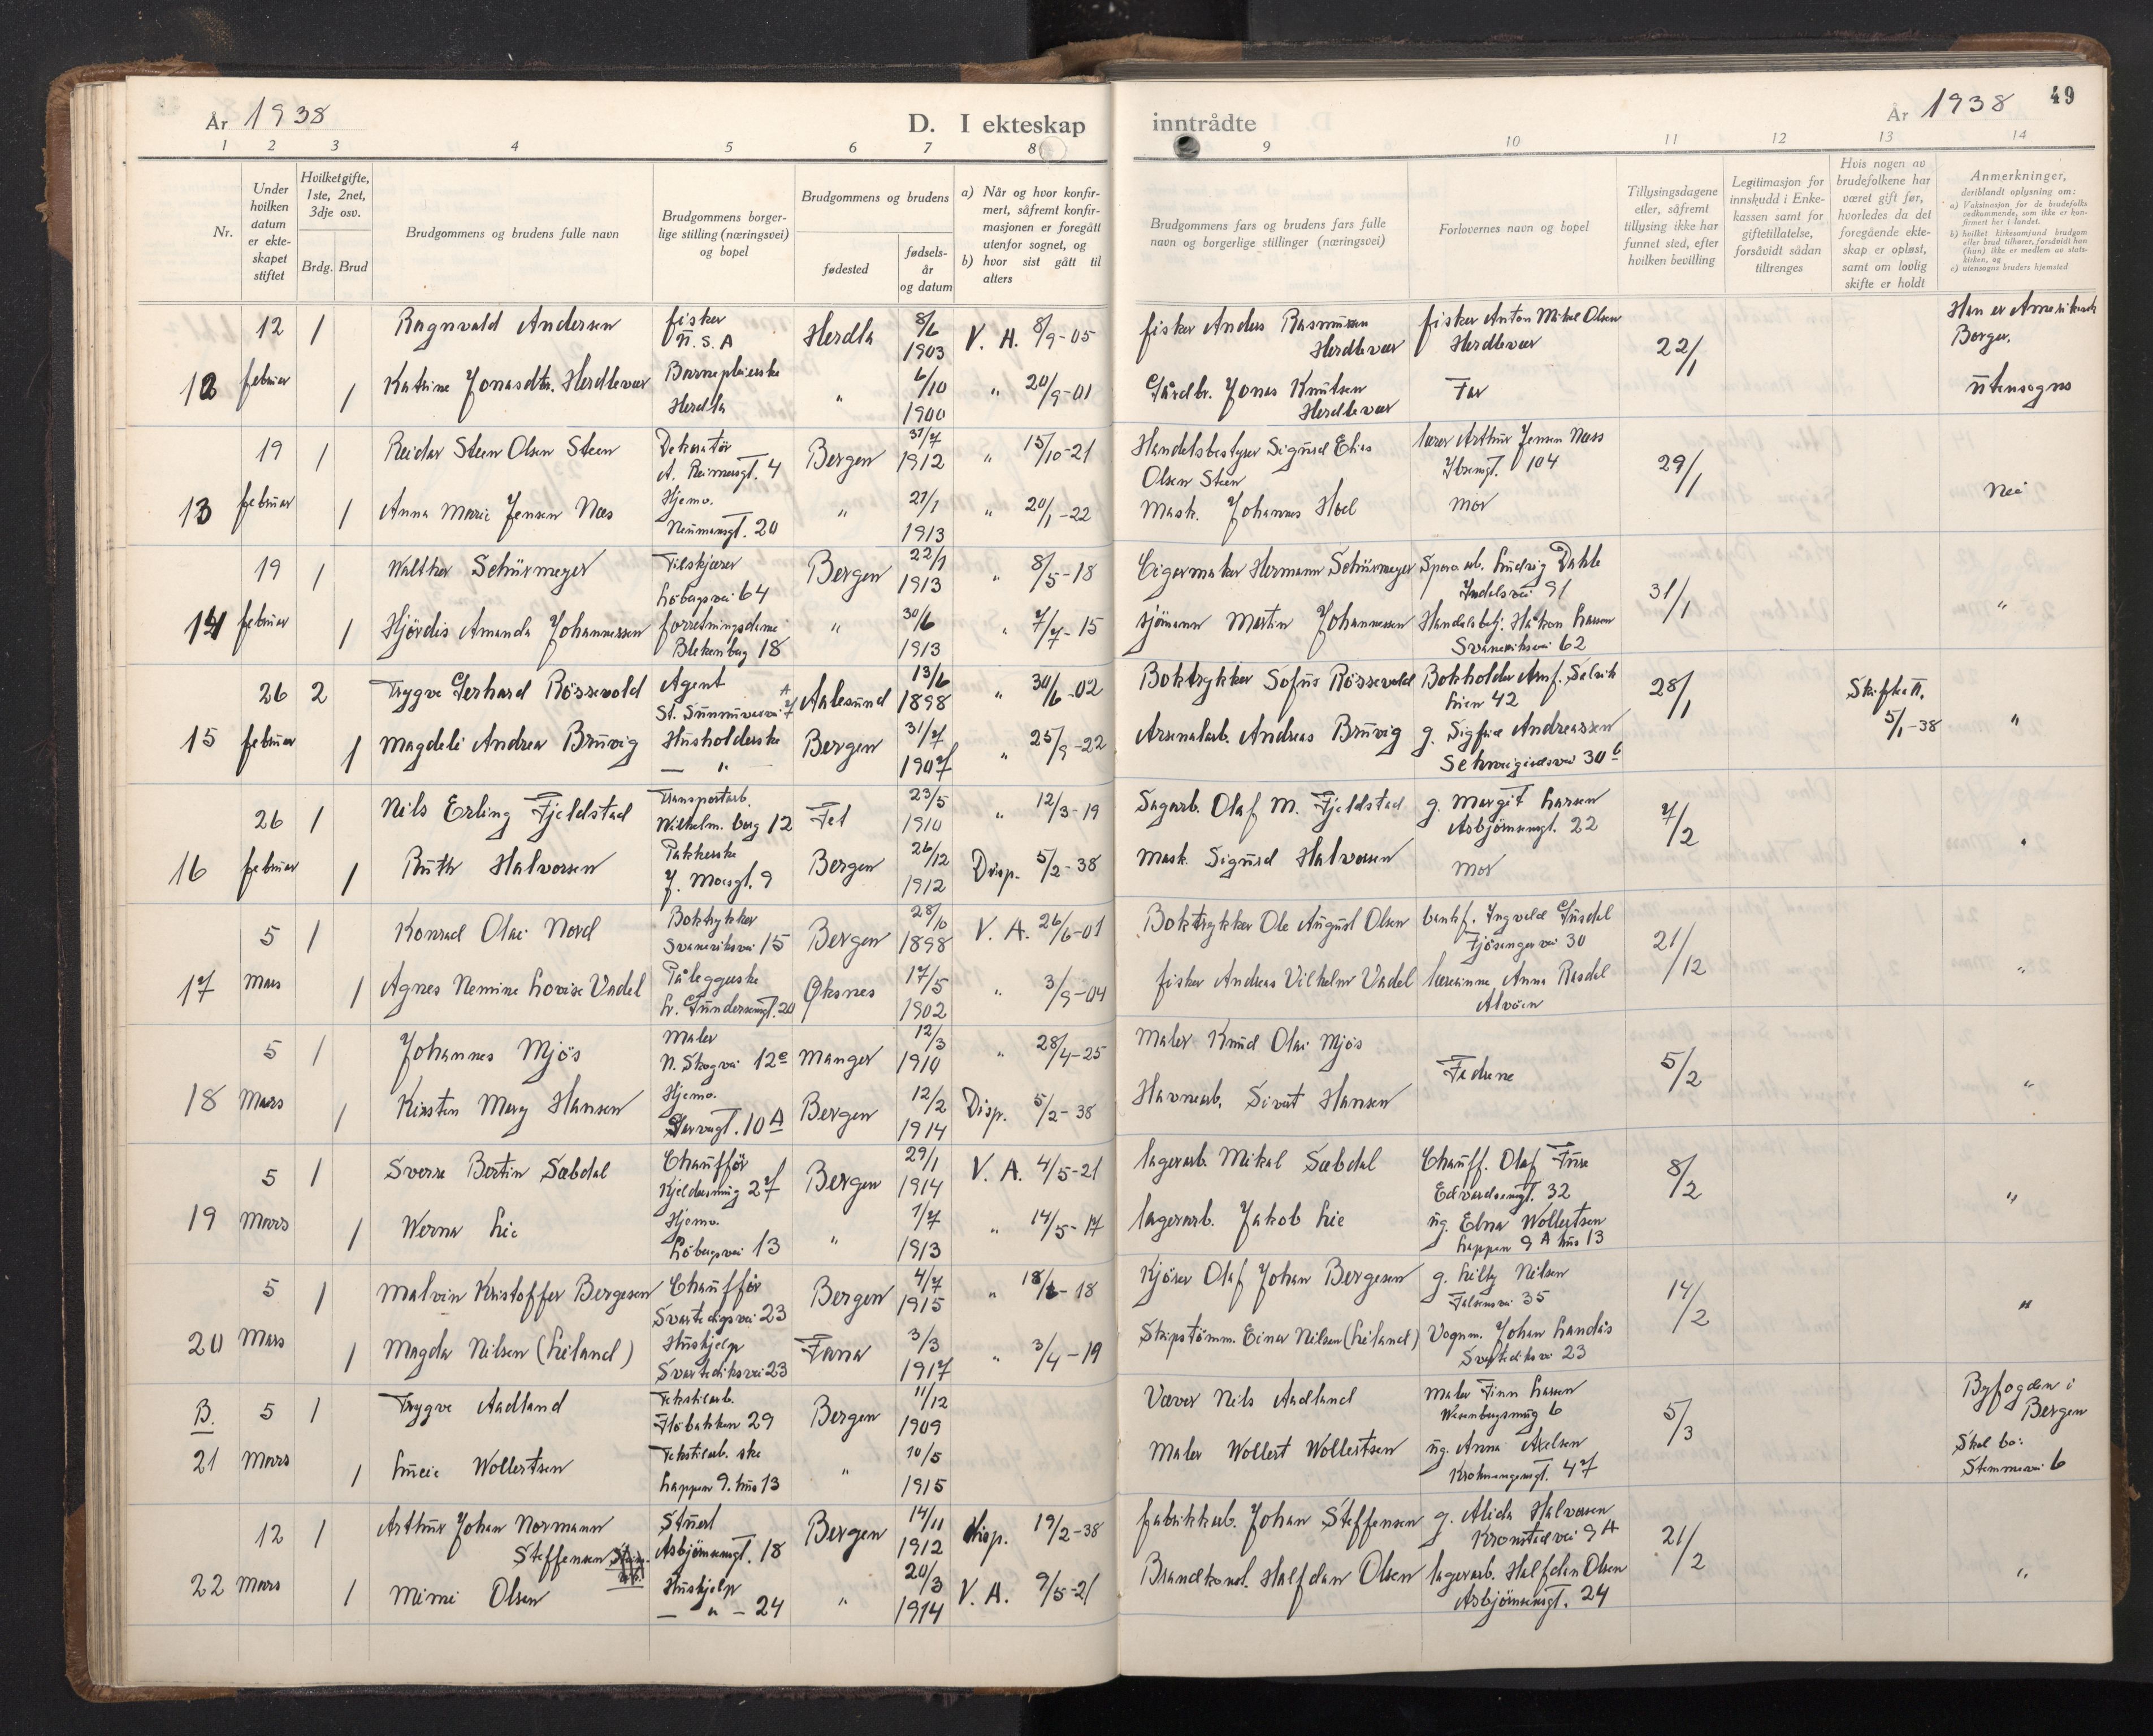 År 1938
D. I ekteskap
inntrådte
År 1938
49
1 2 3 4 5 6 7 8 9 10 11 12 13 14
Nr.
Under hvilken datum er ekteskapet stiftet
Hvilketgifte, 1ste, 2net, 3dje osv.
Brdg. Brud
Brudgommens og brudens fulle navn
Brudgommens borgerlige stilling (næringsvei) og bopel
Brudgommens og brudens
fødested
fødselsår og datum
a) Når og hvor konfirmert, såfremt konfirmasjonen er foregått utenfor sognet, og
b) hvor sist gått til alters
Brudgommens fars og brudens fars fulle navn og borgerlige stillinger (næringsvei)
Forlovernes navn og bopel
Tillysingsdagene eller, såfremt tillysing ikke har funnet sted, efter hvilken bevilling
Legitimasjon for innskudd i Enkekassen samt for giftetillatelse, forsåvidt sådan tiltrenges
Hvis nogen av brudefolkene har været gift før, hvorledes da det foregående ekteskap er opløst, samt om lovlig skifte er holdt
Anmerkninger, deriblandt oplysning om:
a) Vaksinasjon for de brudefolks vedkommende, som ikke er konfirmert her i landet.
b) hvilket kirkesamfund brudgom eller brud tilhører, forsåvidt han (hun) ikke er medlem av statskirken, og
c) utensogns bruders hjemsted
12 1 Ragnvald Andersen fisker U.S.A Herdla 8/6 1903 V. A. 8/9-05 fisker Anders Rasmussen Herdlevær fisker Anton Mikal Olsen Herdlevær 22/1 Han er Amerikansk Borger.
12 februar 1 Katrine Jonasdtr. Herdlevær Barnepleierske Herdla " 6/10 1900 " 20/9-01 Gårdbr. Jonas Knutsen Herdlevær Far utensogns
19 1 Reidar Steen Olsen Steen Dekoratør A. Reimersgt. 4 Bergen 31/7 1912 " 15/10-21 Handelsbestyrer Sigurd Elias Olsen Steen lærer Arthur Jensen Næss Ibsensgt. 104 29/1
13 februar 1 Anna Marie Jensen Næs Hjemv. Neumansgt. 20 " 27/1 1913 " 20/1-22 Mask. Johannes Hoel Mor Nei
19 1 Walther Schürmeyer Tilskjærer Løbergsvei 64 Bergen 22/1 1913 " 8/5-18 Cigarmaker Hermann Schürmeyer Sporv.arb. Ludvig Dahle Indelsvei 91 31/1
14 februar 1 Hjørdis Amanda Johannessen forretningsdame Blekenberg 18 " 30/6 1913 " 7/7-15 sjømann Martin Johannessen Handelsbetj. Håkon Larsen Svaneviksvei 62 "
26 2 Trygve Gerhard Røssevold Agent St. Sunnivavei 7 A Aalesund 13/6 1898 " 30/6-02 Boktrykker Sofus Røssevold Bokholder Arnf. Selvik Lien 42 28/1 Skifte att. 5/1-38
15 februar 1 Magdeli Andrea Bruvig Husholderske — " — Bergen 31/7 1907 " 25/9-22 Arsenalarb. Andreas Bruvig g. Sigfrid Andreassen Schweigaardsvei 30 b "
26 1 Nils Erling Fjeldstad Transportarb. Wilhelm. berg 12 Fet 23/5 1910 " 12/3-19 Sagarb. Olaf M. Fjeldstad g. Margit Larsen Asbjørnsensgt. 22 7/2
16 februar 1 Ruth Halvorsen Pakkerske J. Moesgt. 9 Bergen 26/12 1912 Disp. 5/2-38 Mask. Sigurd Halvorsen Mor "
5 1 Konrad Olai Nord Boktrykker Svaneviksvei 15 Bergen 1898 V. A. 26/6-01 Boktrykker Ole August Olsen bankf. Ingvald Gusdal Fjøsangervei 30 21/12
17 Mars 1 Agnes Nemine Lovise Vadel Påleggerske L. Gundersensgt. 20 Øksnes 17/5 1902 " 3/9-04 fisker Andreas Vilhelm Vadel lærerinne Anna Rasdal Alvøen "
5 1 Johannes Mjøs Maler N. Skogvei 12 e Manger 12/3 1910 " 28/4-25 Maler Knud Olai Mjøs Fedrene 5/2
18 Mars 1 Kirsten Mary Hansen Hjemv. Garvergt. 10 A Bergen 12/2 1914 Disp. 5/2-38 Havnearb. Sivert Hansen "
5 1 Sverre Bertin Sæbdal Chauffør Kjeldersmug 27 Bergen 29/1 1914 V. A. 4/5-21 lagerarb. Mikal Sæbdal Chauff. Olaf Fure Edvardsensgt. 32 8/2
19 Mars 1 Werna Lie Hjemv. Løbergsvei 13 " 1/7 1913 " 14/5-17 lagerarb. Jakob Lie ug. Edna Wollertsen Lappen 9 A hus 13 "
5 1 Malvin Kristoffer Bergesen Chauffør Svartedigsvei 23 Bergen 4/7 1915 " 18/2-18 Kjører Olaf Johan Bergesen g. Lilly Nilsen Falsensvei 35 14/2
20 Mars 1 Magda Nilsen (Liland) Hushjelp Svartediksvei 23 Fana 3/3 1917 " 3/4-19 Skipstømm. Einar Nilsen (Liland) Vognm. Johan Landås Svartediksvei 23 "
B. 5 1 Trygve Aadland Tekstilarb. Fløbakken 29 Bergen 11/12 1909 Væver Nils Aadland Maler Finn Larsen Wesenbergsmug 6 5/3 Byfogden i Bergen
21 Mars 1 Lucie Wollertsen Tekstilarb.ske Lappen 9. hus 13 " 10/5 1915 Maler Wollert Wollertsen ug. Anna Axelsen Krohnengensgt. 47 Skal bo: Stemmevei 6
12 1 Arthur Johan Normann Steffensen Stuert Asbjørnsensgt. 18 Bergen 14/11 1912 Disp. 19/2-38 fabrikkarb. Johan Steffensen g. Alida Halvorsen Kronstadvei 9 A 21/2
22 Mars 1 Mimi Olsen Hushjelp — " — 24 " 20/3 1914 V. A. 9/5-21 Brandkonst. Halfdan Olsen lagerarb. Halfdan Olsen Asbjørnsensgt. 24 "